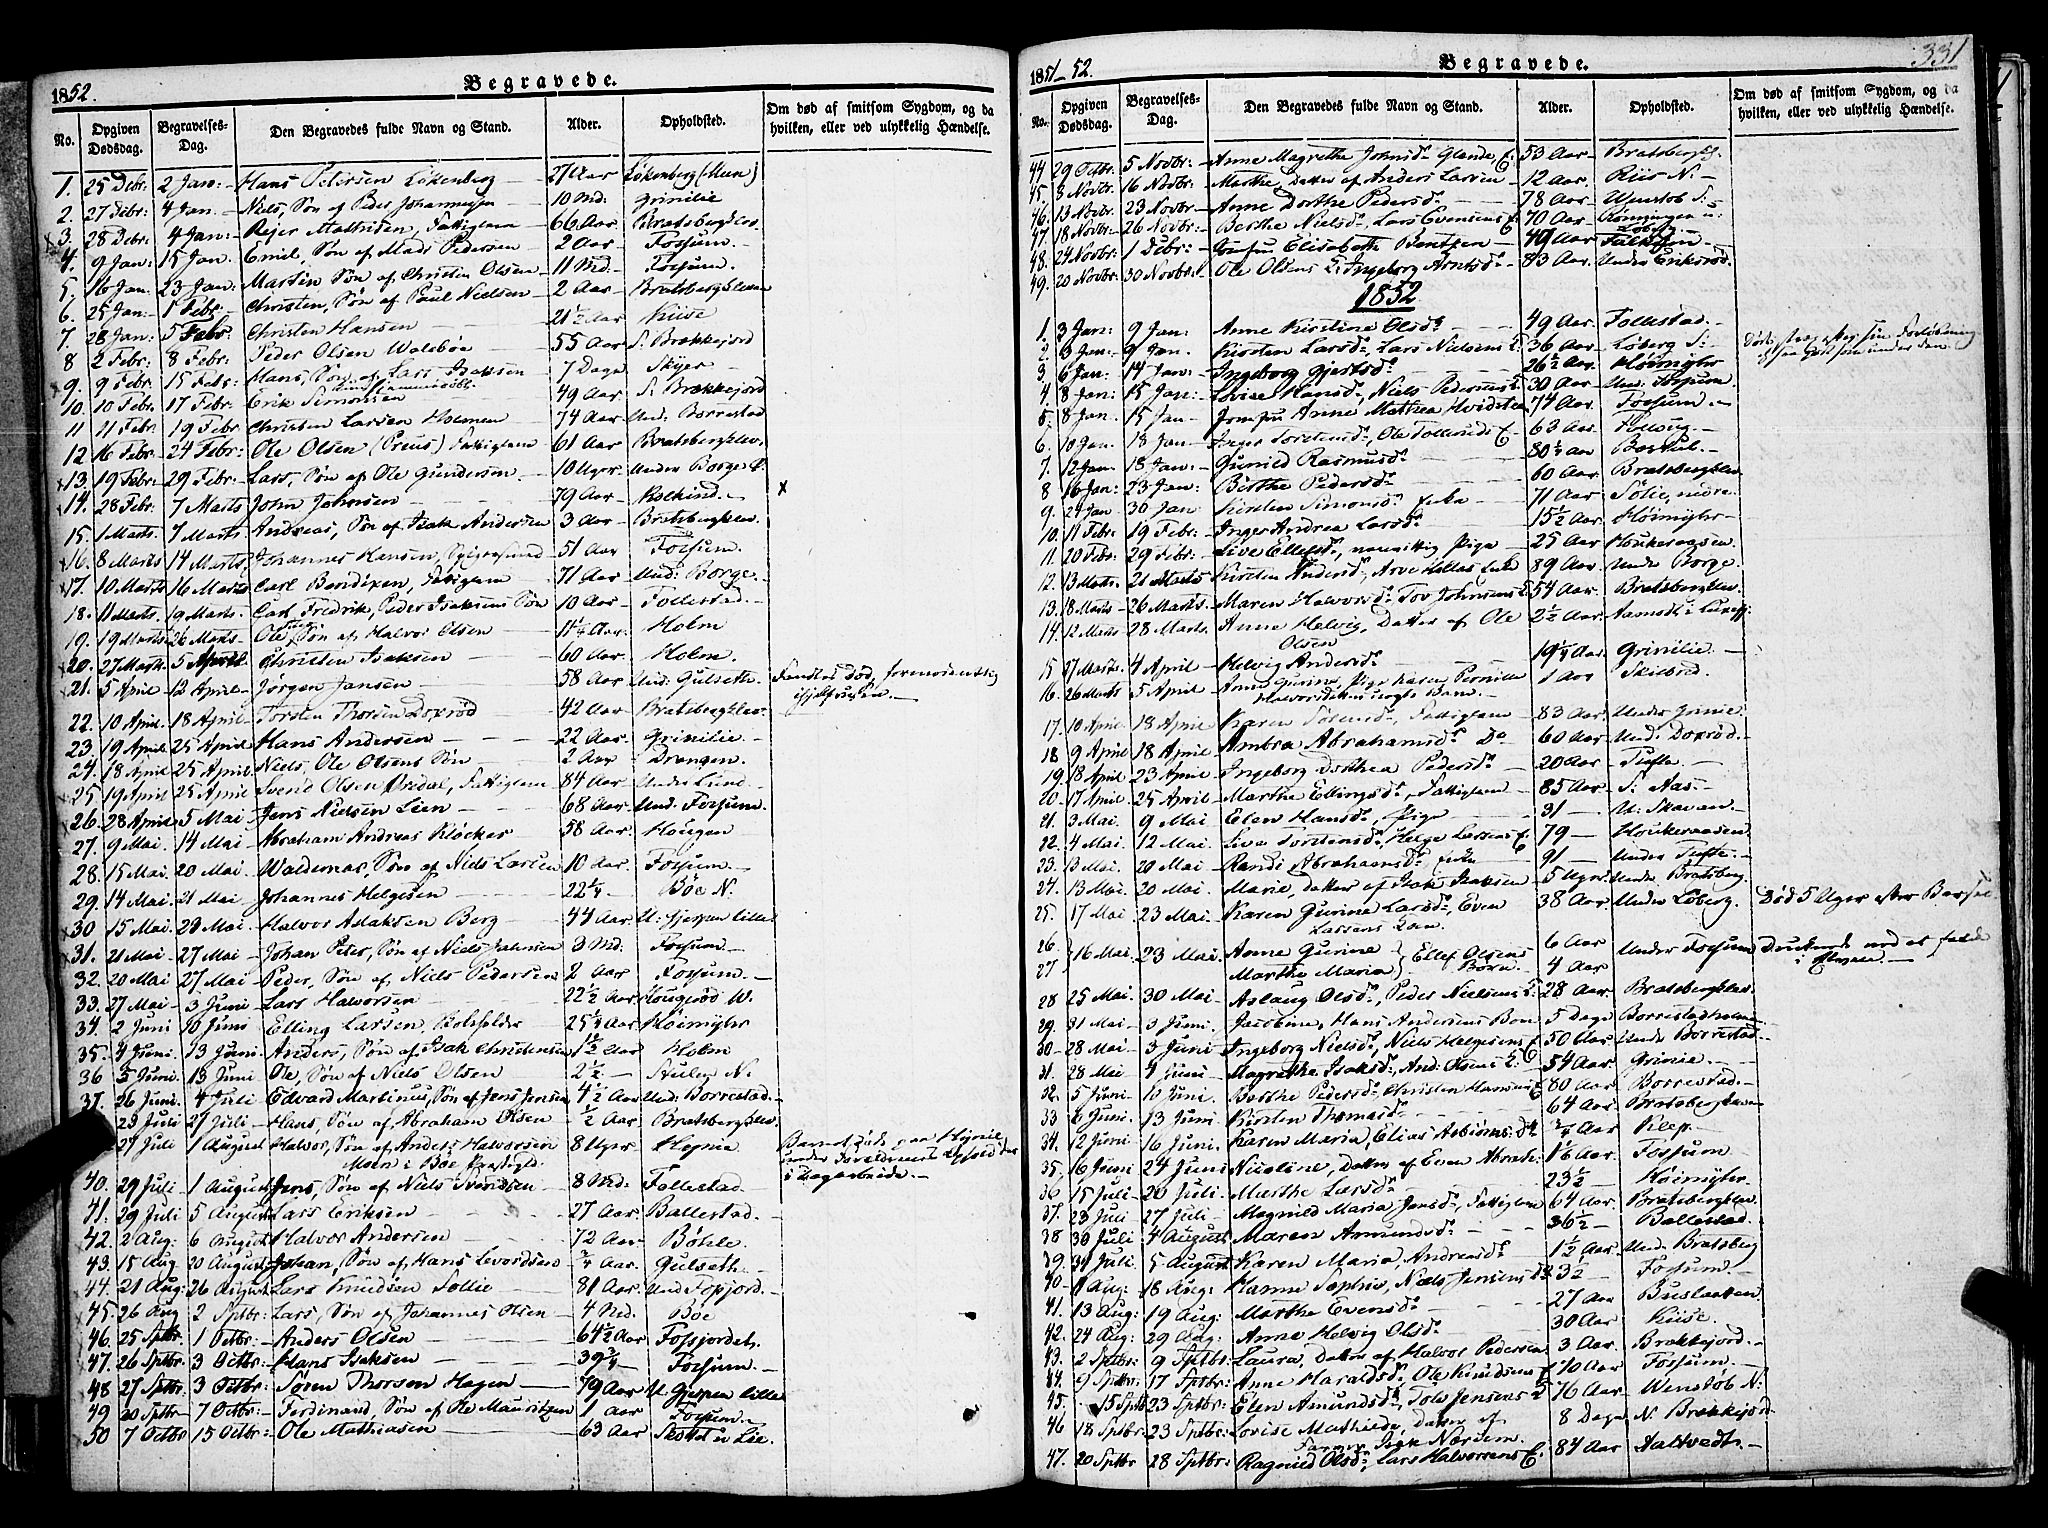 1852.
Begravede.
No.
Opgiven Dødsdag.
Begravelses-Dag.
Den Begravedes fulde Navn og Stand.
Alder.
Opholdsted.
Om død af smitsom Sygdom, og da hvilken, eller ved ulykkelig Hændelse.
1. 25 Debr: 2 Jan: Hans Petersen Løkenberg 27 Aar Løkenberg
2. 27 Febr: 4 Jan. Niels, Søn af Peder Johannesen 10 Md. Grinilie
3. 28 Debr: 4 Jan: Rejer Mathisen, Fattiglem 66 Aar Bratsbergklev.
4. 9 Jan: 15 Jan. Emil, Søn af Mads Pedersen 2 Aar Fossum.
5. 16 Jan. 23 Jan: Martin Søn af Christen Olsen 11 Md. Fossum.
6. 25 Jan: 1 Febr. Christen, Søn af Paul Nielsen 2 Aar Bratsbergkleven
7. 28 Jan: 5 Febr Christen Hansen 21½ Aar Kiise
8 2 Febr: 8 Febr: Peder Olsen 55 Aar S: Brækkejord
9. 9 Febr: 15 Febr: Hans, Søn af Lars Isaksen 7 Dage
10. 10 Febr: 17 Febr: Erik Simonsen 49 Aar S. Brækkejord
11 11 Febr. 19 Febr: Christen Larsen Holmen 74 Aar Und: Borrestad
12 16 Febr. 24 Febr: Ole Olsen (Preius) Fattiglem 61 Aar Bratsbergklev.
13. 19 Febr: 29 Febr: Lars, Søn af Ole Gundersen 10 Uger Under Borge
14. 28 Febr: 7 Marts John Johnsen 79 Aar x
15. 1 Marts 7 Marts Andreas, Søn af Isak Andersen 3 Aar Bratsbergklev.
16. 8 Marts 14 Marts Johannes Hansen, 51 Aar Fossum.
17. 10 Marts 16 Marts Carl Bendixen, Fattiglem 71 Aar Und: Borge
18. 11 Marts 19 Marts. Carl Fredrik, Peder Isaksens Søn 10 Aar Follestad.
19. 19 Marts 26 Marts. Ole, Søn af Halvor Olsen 11¼ Aar: Holm
20. 27 Marts 5 April Christen Isaksen 60 Aar Holm.
21. 5 April 12 April Jørgen Jansen 58 Aar Und: Gulseth Fandtes død, formodentlig ihjelfrusen
22. 10 April 18 April Torsten Thorsen Doxrød 42 Aar Bratsbergklev.
23. 19 April 25 April Hans Andersen 22 Aar. Grinilie
24. 18 April 25 April Niels, Ole Olsens Søn 2 Aar Drangen.
25 19 April 25 April Svend Olsen Fattiglem 84 Aar Under Lund
26. 28 April 5 Mai Jens Nielsen Lien 68 Aar Und: Fossum.
27. 9 Mai 14 Mai Abraham Andreas Kløcker 58 Aar. Hougen
28. 15 Mai 20 Mai Waldemar, Søn af Niels Larsen 10 Aar. Fossum.
29. 14 Mai. 21 Mai Johannes Helgesen 22¼ Bøe N.
30 15 Mai. 23 Mai Halvor Aslaksen Berg 44 Aar. U: Gjerpen lille
31. 21 Mai 27 Mai Johan Peter, Søn af Niels 3 Md. Fossum
32. 20 Mai 27 Mai Peder, Søn af Niels Pedersen 2 Aar Fossum.
33. 27 Mai 3 Juni Lars Halvorsen 22½ Aar Hougerød W.
34. 2 Juni 10 Juni Elling Larsen, 25¼ Aar Høimyhr
35. 4 Juni. 13 Juni Anders, Søn af Isak Christensen 1½ Aar Holm
36 5 Juni. 13 Juni Ole, Søn af Niels Olsen 2½
37. 26 Juni. 4 Juli Edvard Martinius, Søn af Jens Jensen 4½ Aar Und: Borrestad.
23 Juli 27 Juli Hans, Søn af Abraham Olsen ½ Aar. Bratsbergklev.
27 Juli 1 August Halvor, Søn af Anders Halvorsen 8 Uger
40. 29 Juli 1 August Jens, Søn af Niels 8 Md. Follestad
41. 29 Juli 5 August Lars Eriksen 27 Aar. Ballestad.
42. 2 Aug: 6 August Halvor Andersen 12 Aar Bøhle.
43. 15 Aug 20 August Johan, Søn af Hans ¾ Aar. Gulseth
44. 21 Aug: 26 August Lars Knudsen 81 Aar
45. 26 Aug 2 Sptbr: Lars, Søn af Johannes Olsen 4 Md. Bøe
46. 25 Sptbr 1 Octbr: Anders Olsen 64½ Aar
47. 26 Sptbr 3 Octbr: Hans Isaksen 39¾ Fossum
48 27 Sptbr 3 Octbr: Søren Thorsen Hagen 79 Aar U. Gjerpen lille
49 20 Sptbr 7 Octbr: Ferdinand, Søn af Ole Mauritzen 1 Aar Fossum
50 7 Octbr 15 Octbr: Ole Mathiasen 63 Aar
331
1851-52.
Begravede.
No.
Opgiven Dødsdag.
Begravelses-Dag.
Den Begravedes fulde Navn og Stand.
Alder.
Opholdsted.
Om død af smitsom Sygdom, og da hvilken, eller ved ulykkelig Hændelse.
44 29 Octbr: 5 Novbr: Anne Magrethe Johnsd. 53 Aar Bratsbergkl.
45 8 Novbr: 16 Novbr: Marthe, Datter af Anders Larsen 12 Aar. Riis N.
46. 13 Novbr. 23 Novbr. Anne Dorthe Pedersd. 78 Aar Wenstøb S:
47. 18 Novbr: 26 Novbr: Berthe Nielsd., Lars Evensens E. 70 Aar
48. 24 Novbr: 1 Debr: Jomfru Elisabeth Bentzen 40 Aar
49. 20 Novbr: 30 Novbr: Ole Olsens E: Ingeborg Arntsd. 83 Aar Under Eriksrød.
1852
1. 3 Jan: 9 Jan: Anne Kirstine Olsd. 49 Aar Follestad.
2. 3 Jan: 9 Jan. Kirsten Larsd., Lars Nielsens E: 36 Aar Løberg S:
3 6 Jan: 14 Jan: Ingeborg Gjertsd. 26½ Aar Høimyhr
4. 8 Jan: 15 Jan: Lovise Hansd., Niels Pedersens E. 30 Aar Und: Fossum.
5. 8 Jan. 15 Jan Jomfru Anne Mathea Hvidsteen 74 Aar Fossum.
6. 10 Jan. 18 Jan: Inger Torstensd., Ole E. 63 Aar
7. 12 Jan: 18 Jan: Gunild Rasmusd. 80½ Aar
8 16 Jan: 23 Jan: Berthe Pedersd. 60 Aar Bratsbergklev
9. 24 Jan 30 Jan Kirsten Simonsd. Enke 71 Aar
10. 11 Febr. 19 Febr: Inger Andrea Larsd. 15½ Aar Høimyhr
11. 20 Febr: 29 Febr: Live Ellefsd., Pige 25 Aar
12. 13 Marts. 21 Marts Kirsten Andersd., Enke 89 Aar Under Borge.
13. 18 Marts 26 Marts Maren Halvorsd. Tov Johnsens E. 54 Aar Bratsbergklev.
14. 12 Marts 28 Marts. Anne Helvig, Datter af Ole Olsen 2½ Aar
15 27 Marts. 4 April Helvig Andersd. 19¼ Aar Grinilie.
16. 26 Marts 5 April 1 Aar Skilbred.
17. 10 April 18 April Karen Fattiglem 83 Aar Under Grinie.
18 9 April 18 April Ambra Abrahamsd. Do 60 Aar Und: Doxrød.
19. 18 April 23 April Ingeborg Dorthea Pedersd. 20 Aar Tufte.
20. 17 April 25 April Marthe Ellingsd., Fattiglem 85 Aar S: Aas.
21. 3 Mai. 9 Mai Elen Hansd., Pige 31
22. 4 Mai. 12 Mai Live Torstensd., Helge Larsens E. 79
23. 13 Mai. 20 Mai Randi Abrahamsd. Enke 91 Under Tufte.
24. 13 Mai. 20 Mai. Marie, Datter af Isak Isaksen 5 Uger. Under Bratsberg.
25. 17 Mai 23 Mai Karen Gurine Larsd., Even Larsens Kone. 38 Aar Under Løberg. Død 5 Uger efter Barsel
26 27 16 Mai. 23 Mai Anne Gurine Marthe Maria Ellef Olsens Børn 6 Aar 4 Aar Under Fossum Druknede ved at falde i Elven.
28 25 Mai. 30 Mai Aslaug Olsd., Peder Nielsens E. 28 Aar. Bratsbergklev
29. 31 Mai 3 Juni. Jacobine, Hans Andersens Barn 5 Dage
30 28 Mai 3 Juni Ingeborg Nielsd., Niels Helgesens E. 50 Aar Under Borrestad.
31. 28 Mai 4 Juni Magrethe Isaksd., And: Olsens E. 54 Aar. Grinie.
32. 5 Juni. 10 Juni. Berthe Pedersd., Christen Hansens E. 80 Aar Borrestad.
33 6 Juni. 13 Juni Kirsten Thomasd. 64 Aar. Bratsbergkleven
34. 12 Juni 16 Juni. Karen Maria, Elias ¾ Aar
35. 16 Juni 24 Juni Nicoline, Datter af Even 1⅙ Aar Fossum
36 15 Juli 20 Juli. Marthe Larsd. 23½ Høimyhr
37. 23 Juli 27 Juli Magnild Maria Jensd., Fattiglem 64 Aar Bratsbergklev
38 30 Juli 4 August Maren Amundsd. 36½ Ballestad.
39. 31 Juli. 5 August Karen Maria, Andreasd. 1½ Aar Und: Bratsberg
40 Aug: 18 Aug: Hanne Sophie, Niels Jensens D. 3½ Fossum.
41. 13 Aug: 19 Aug: Marthe Evensd. 27 Aar
42. 24 Aug: 29 Aug: Anne Helvig Olsd. 30 Aar Kiise.
43. 2 Sptbr: 9 Sptbr: Laura, Datter af Halvor Pedersen 3 Aar: Brækkejord.
44. 9 Sptbr: 17 Sptbr: Anne Haraldsd., Ole Knudsens E. 70 Aar Fossum.
45. 15 Sptb 23 Sptbr: Elen Amundsd., Jensens E 76 Aar Wenstøb N:
46 18 Sptbr. 23 Sptbr: Lovise Mathilde, Datter af 8 Dage N. Brækkejord
47. 20 Sptbr 28 Sptbr: Ragnild Olsd., Lars Halvorsens E. 84 Aar Aaltvedt.